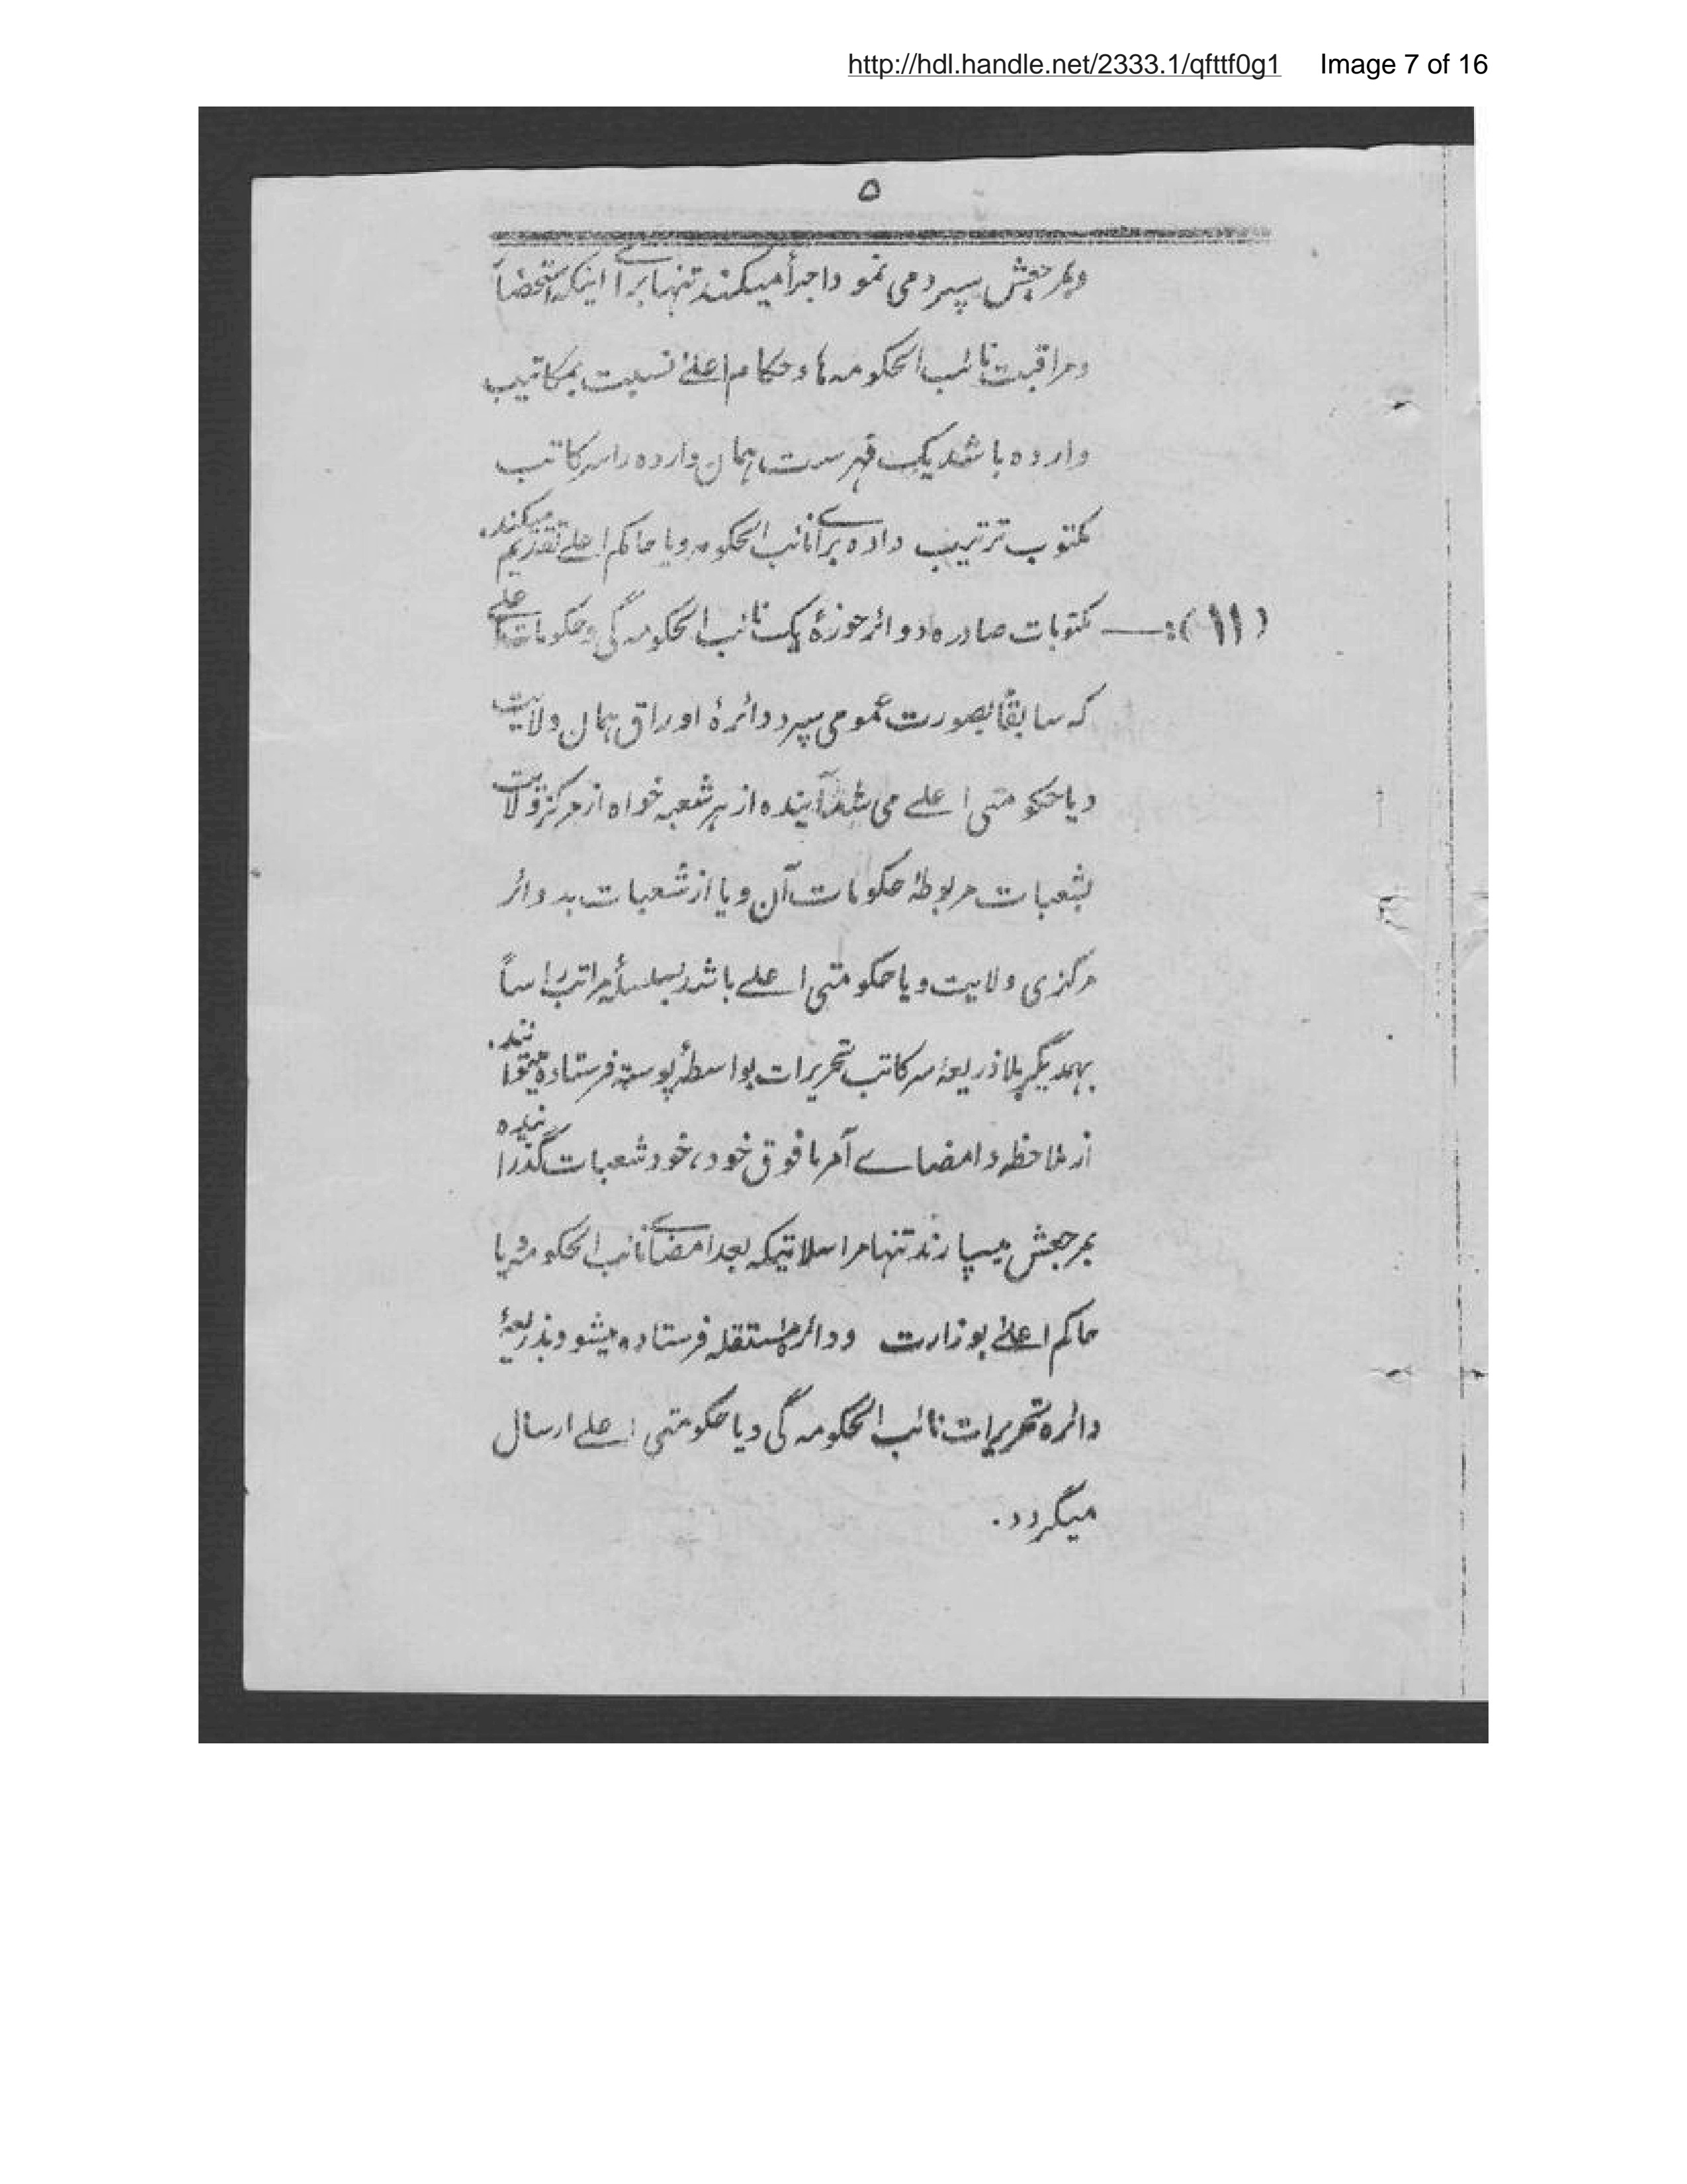 http://hdl.handle.net/2333.1/qfttf0g1 Image 7 of 16
۵
وبمرجعش سپرد می نمود اجرأ میکند تنها برای اینکه استحضار
ومراقبت نائب الحکومه ها و حکام اعلیٰ نسبت بمکاتیب
وارده باشد یک فهرست همان وارده را سرکاتب
مکتوب ترتیب داده برای نائب الحکومه ویا حاکم اعلے تقدیم میکند.
(۱۱):— مکتوبات صادره دوائر حوزۀ یک نائب الحکومه گی وحکومات اعلے
که سابقاً بصورت عمومی سپرد دائرۀ اوراق همان ولایت
ویا حکومتی اعلے می شد آینده از هر شعبه خواه از مرکز ولایت
بشعبات مربوطۀ حکومات آن ویا از شعبات بدوائر
مرکزی ولایت ویا حکومتی اعلے باشد بسلسلۀ مراتب راساً
بهمدیگر بلا ذریعۀ سرکاتب تحریرات بواسطۀ پوسته فرستاده میتوانند.
از ملاحظه و امضاے آمر مافوق خود، خود شعبات گذرانیده
بمرجعش میسپارند تنها مراسلاتیکه بعد امضاے نائب الحکومه ویا
حاکم اعلیٰ بوزارت ودائر مستقله فرستاده میشود بذریعۀ
دائره تحریرات نائب الحکومه گی ویا حکومتی اعلے ارسال
میگردد.